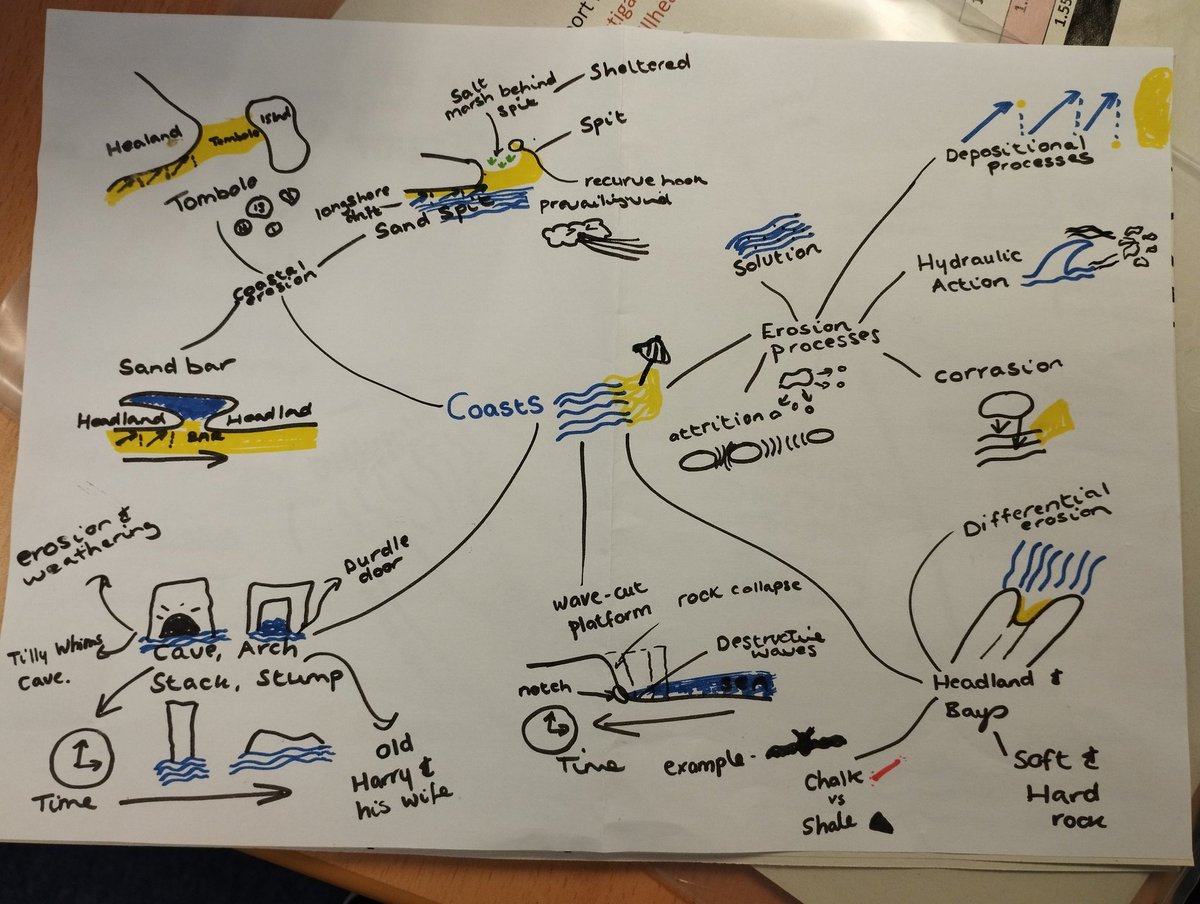 port
tiga
llhea
1.
1.55
Healand
Tombolo
Tombolo
Salt
marsh behind
spit
Sheltered
Spit
recurve hook
longshore
drift
Sand Spit
prevailing wind
Coastal
erosion
Sand bar
Headland
Headlad
BAR
Coasts
Solution
Erosion
processes
Depositional
processes
Hydraulic
Action
corrasion
attrition
erosion &
weathering
Durdle
door
Tilly Whims
cave.
Cave, Arch
Stack, Stump
Time
old
Harry &
his wife
wave-cut
platform
rock collapse
Destructive
waves
notch
sea
Time
example-
Differential
erosion
Headland &
Bays
Chalk
vs
Shale
Soft &
Hard
rock